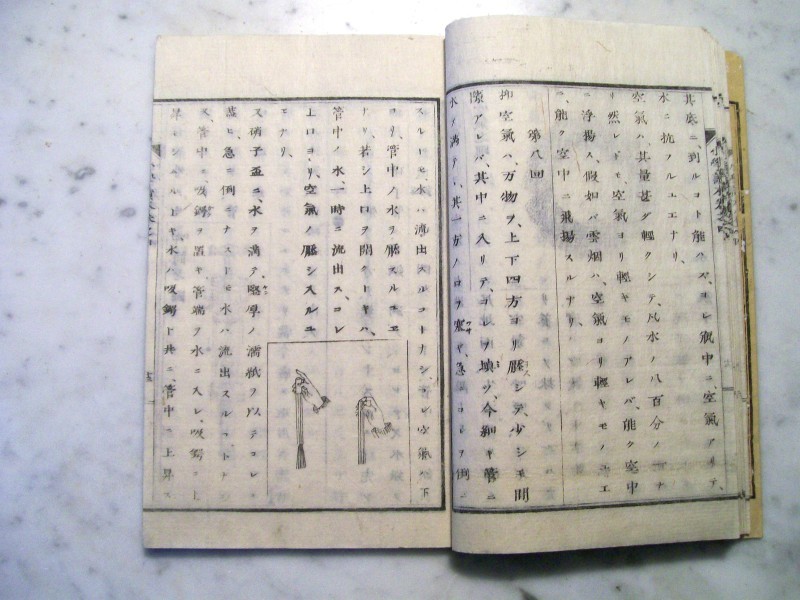 其底ニ到ルコト能ハズ、コレ瓶中ニ空氣アリテ、
水ニ抗フルユエナリ、
空氣ハ、其量甚ダ輕クシテ、凡水ノ八百分ノ一ナ
リ然レドモ、空氣ヨリ輕キモノアレバ、能ク空中
ニ浮揚ス、假如バ雲烟ハ、空氣ヨリ輕キモノユエ
ニ、能ク空中ニ飛揚スルナリ、
第八回
抑空氣ハ、万物ヲ、上下四方ヨリ壓シテ、少シモ間
隙アレバ、其中ニ入リテ、コレヲ塡ツ、今細キ管ニ
水ヲ滿テ、其一方ノ口ヲ塞ギ、急ニコレヲ倒ニ
スルトモ水ハ流出スルコトナシ、コレ空氣ハ下
ヨリ、管中ノ水ヲ壓スルユエ
ナリ、若シ上口ヲ開クトキハ、
管中ノ水、一時ニ流出ス、コレ
上口ヨリ、空氣ノ壓シ入ルユ
エナリ、
又硝子盃ニ、水ヲ滿テ、堅厚ノ濡紙ヲ以テコレヲ
蓋ヒ急ニ倒ニナストモ水ハ流出スルコトナシ
又管中ニ吸鍔ヲ置キ管端ヲ水ニ入レ、吸鍔ヲ上
昇セシムルトキ、水ハ吸鍔ト共ニ、管中ニ上昇ス